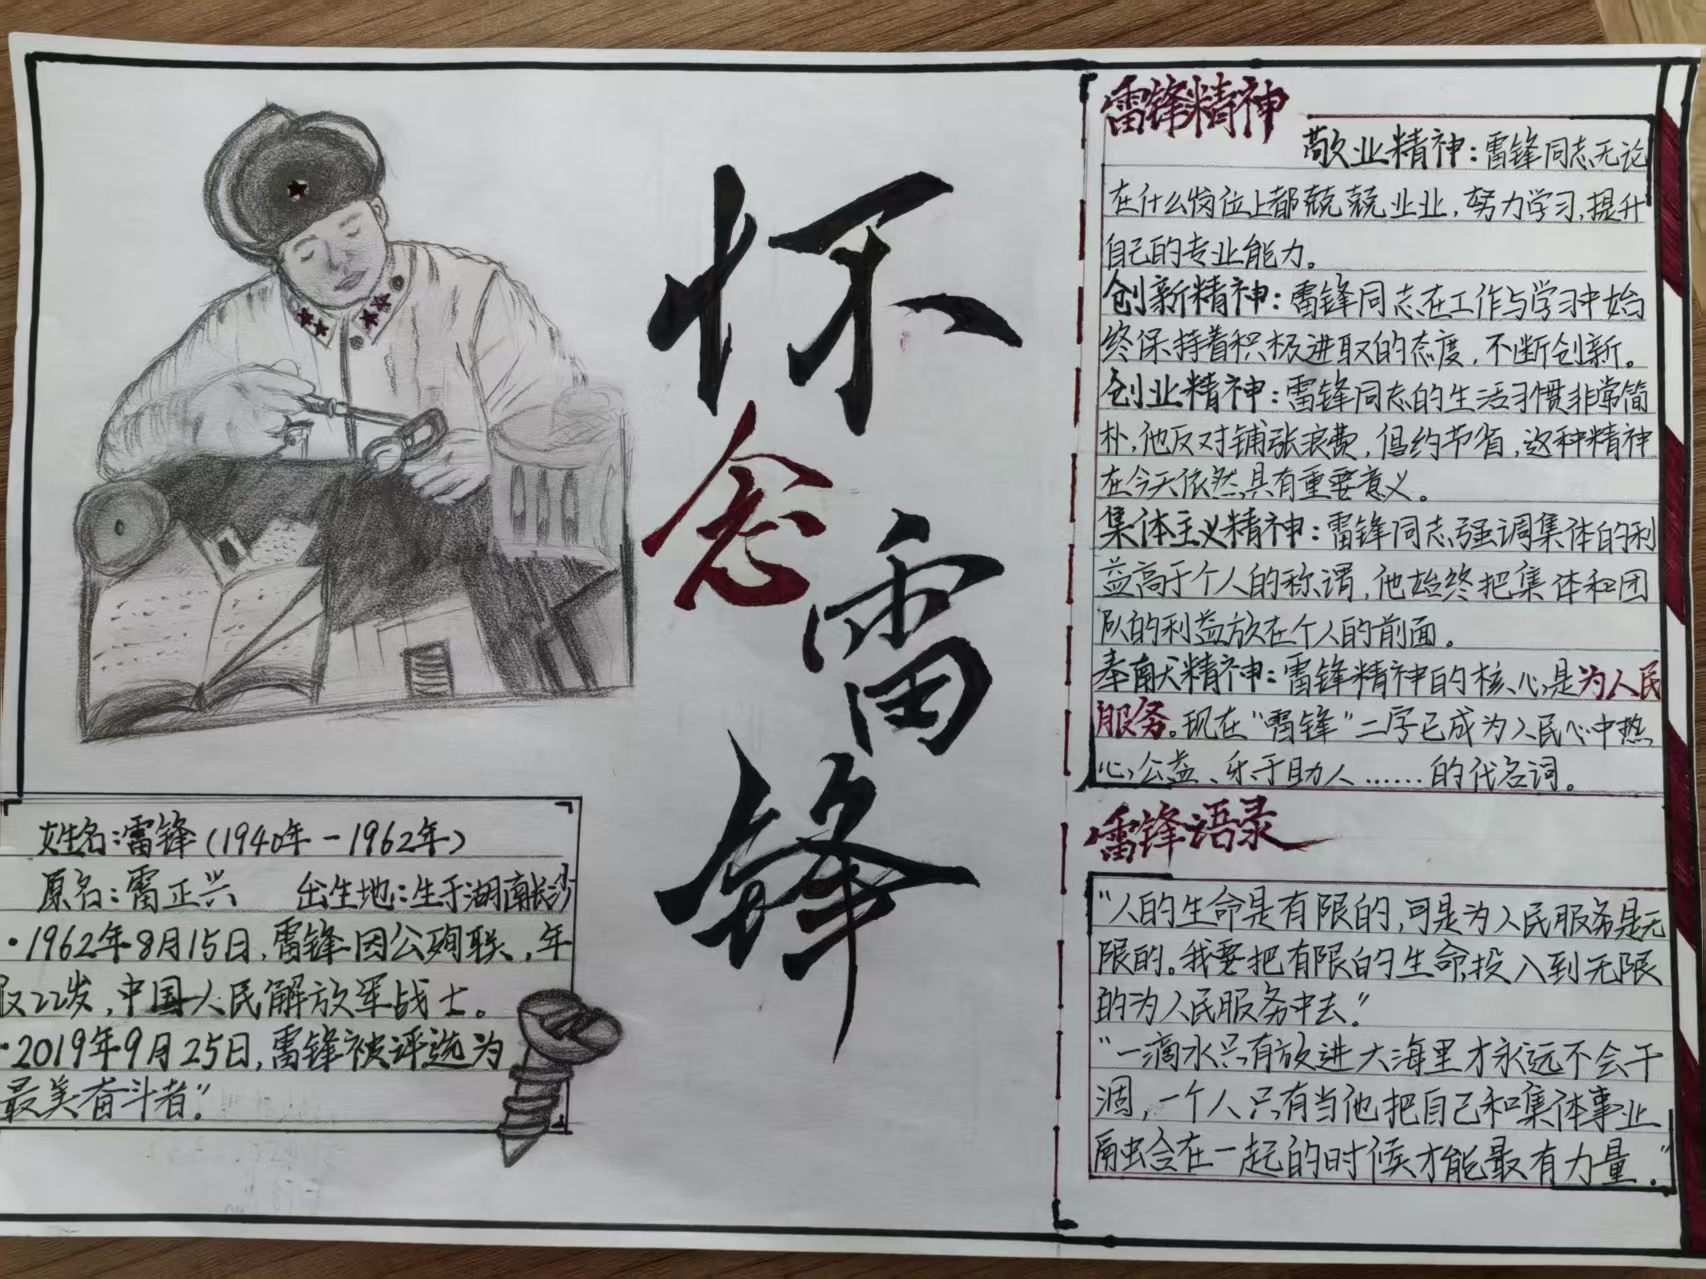 怀念雷锋
姓名:雷锋(1940年-1962年)
原名:雷正兴 出生地:生于湖南长沙
·1962年8月15日,雷锋因公殉职,年
仅22岁,中国人民解放军战士。
·2019年9月25日,雷锋被评选为
最美奋斗者”。
雷锋精神
敬业精神:雷锋同志无论
在什么岗位上都兢兢业业,努力学习,提升
自己的专业能力。
创新精神:雷锋同志在工作与学习中始
终保持着积极进取的态度,不断创新。
创业精神:雷锋同志的生活习惯非常简
朴,他反对铺张浪费,倡约节省,这种精神
在今天依然具有重要意义。
集体主义精神:雷锋同志强调集体的利
益高于个人的称谓,他始终把集体和团
队的利益放在个人的前面。
奉献精神:雷锋精神的核心是为人民
服务。现在“雷锋”二字已成为人民心中热
心公益、乐于助人……的代名词。
雷锋语录
“人的生命是有限的,可是为人民服务是无
限的。我要把有限的生命,投入到无限
的为人民服务中去”
“一滴水只有放进大海里才永远不会干
涸,一个人只有当他把自己和集体事业
融合在一起的时候才能最有力量.”